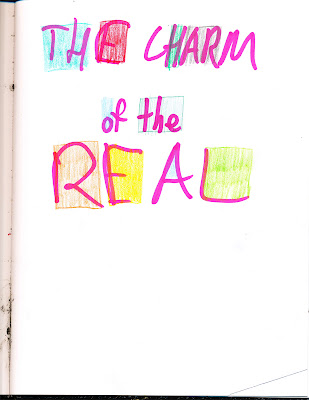 THE CHARM
of the
REAL